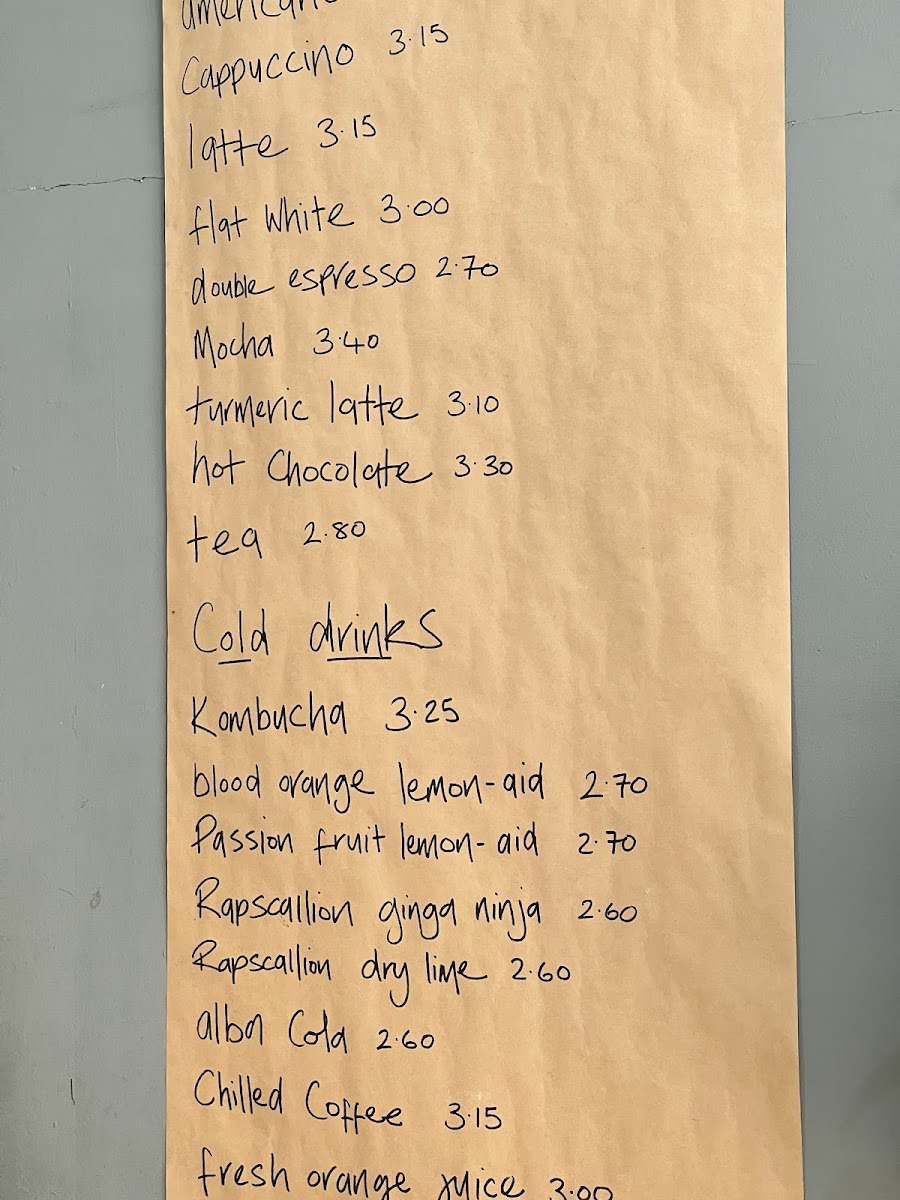 americano
Cappuccino 3.15
latte 3.15
flat White 3.00
double espresso 2.70
Mocha 3.40
turmeric latte 3.10
hot Chocolate 3.30
tea 2.80
Cold drinks
Kombucha 3.25
blood orange lemon-aid 2.70
Passion fruit lemon-aid 2.70
Rapscallion ginga ninja 2.60
Rapscallion dry lime 2.60
alba Cola 2.60
Chilled Coffee 3.15
fresh orange juice 3.00